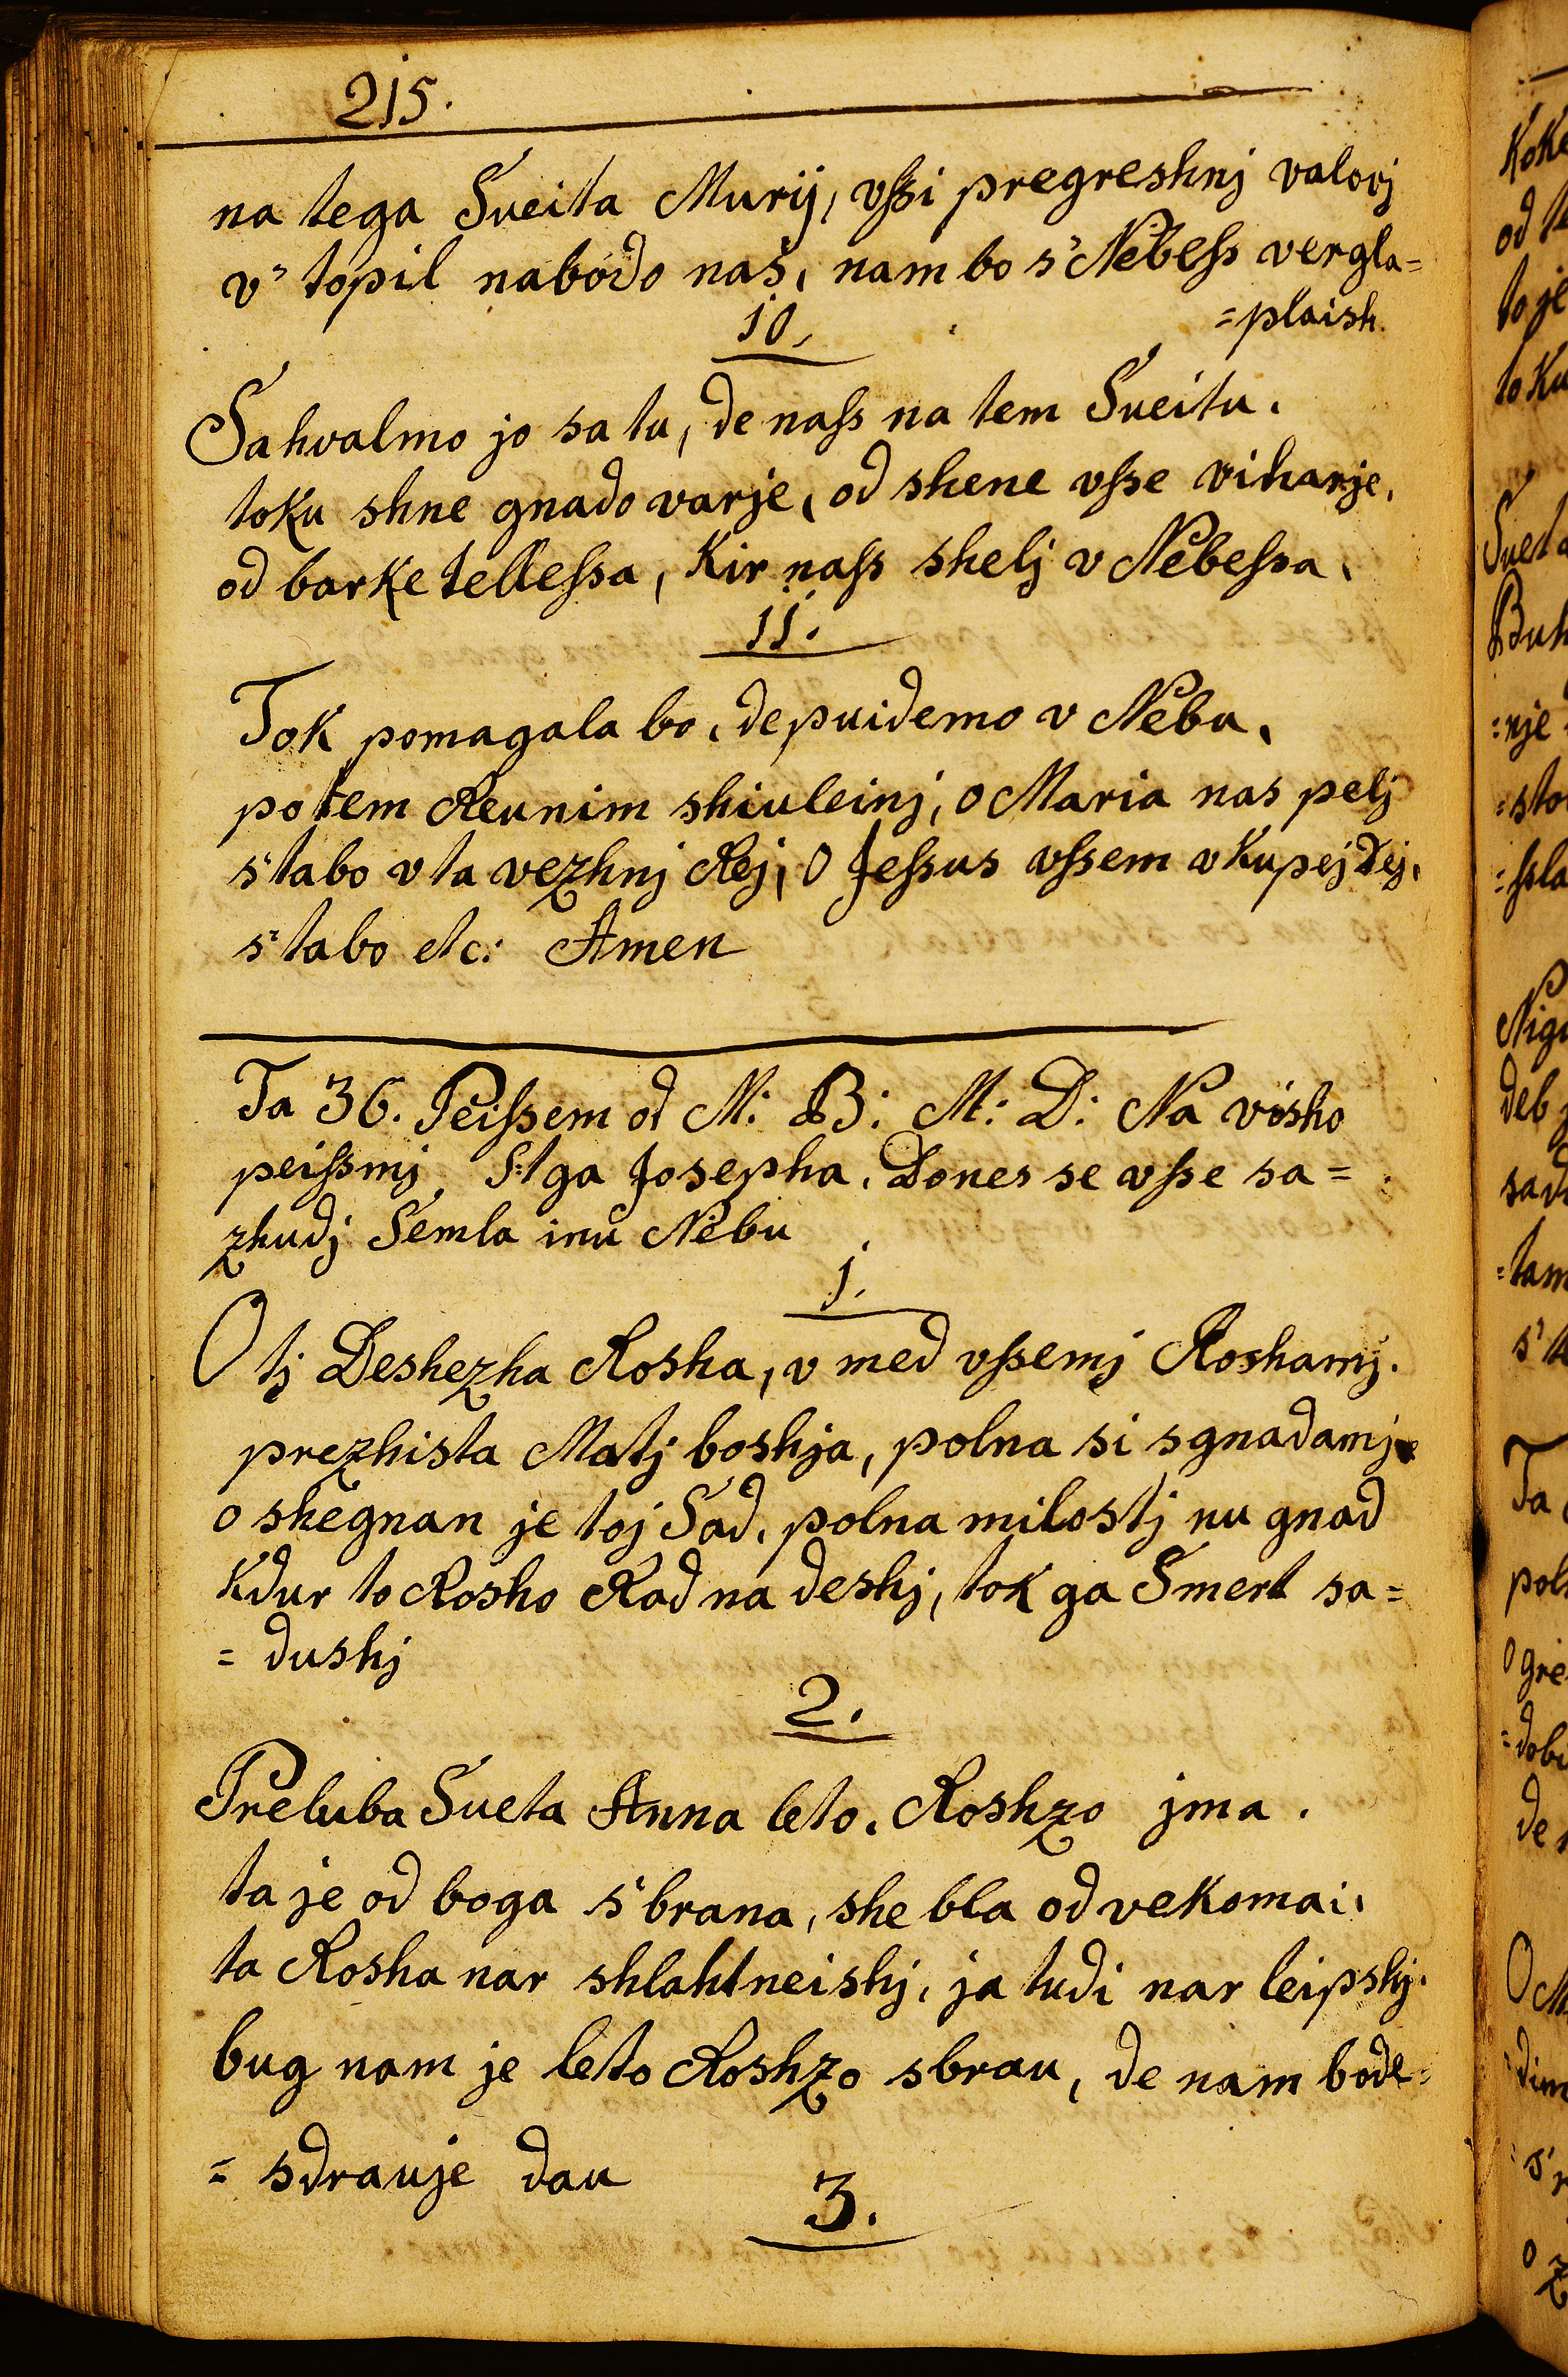 215.
na tega Sueita Murij, vſsi pregreshnj valovj
v' topil nabodo naš, nam bo s' Nebeſs vergla=
=plaish.
10.
Sahvalmo jo sa tu, de naſs na tem Sueitu.
toku shne gnado varje, od shene vſse viharje,
od barke telleſsa, Kir naſs shelj v Nebeſsa.
11.
Tok pomagala bo, de puidemo v Nebu,
potem Reunim shiuleinj, o Maria nas pelj
s' tabo v ta vezhnj Rej, O Jeſsus vſsem vkupej dej,
s' tabo etc: Amen
Ta 36. Peiſsem od M: B: M: D: Na visho
peiſsmj S:tga Josepha. Dones se vſse sa=
zhudj Semla inu Nebu
1.
O tj Deshezha Rosha, v med vſsemj Roshamj.
prezhista Matj boshja, polna si s gnadamj
o shegnan je toj Sad, polna milostj nu gnad
Kdur to Rosho Rad na deshj, tok ga Smert sa=
= dushj
2.
Preluba Sueta Anna leto. Roshzo jma.
ta je od boga s' brana, she bla od vekomai.
ta Rosha nar shlahtneishj, ja tudi nar leipshj.
bug nam je leto Roshzo sbrau, de nam bode=
= sdrauje dau
3.